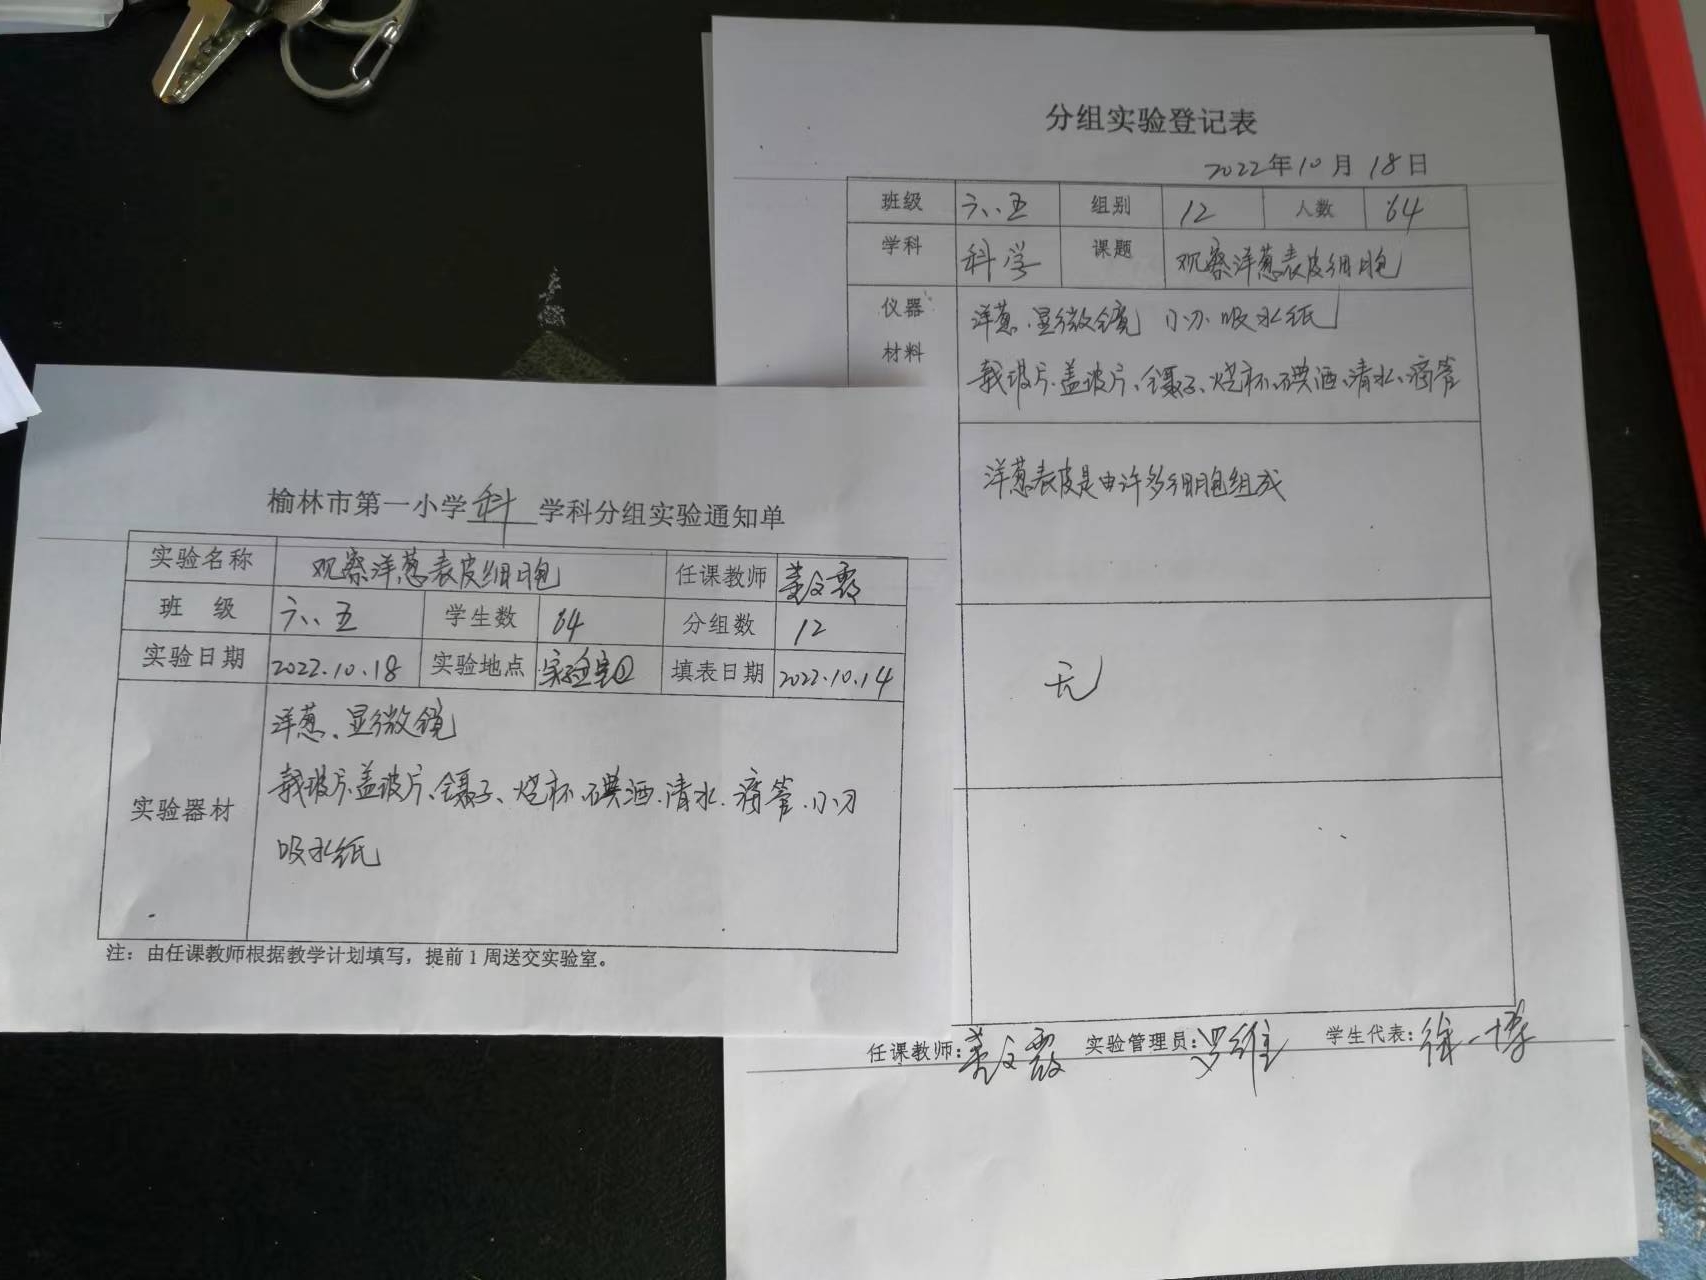 分组实验登记表
2022年10月18日
班级 六、五 组别 12 人数 64
学科 科学 课题 观察洋葱表皮细胞
仪器 洋葱、显微镜 小刀、吸水纸
材料 载玻片、盖玻片、镊子、烧杯、碘酒、清水、滴管
洋葱表皮是由许多细胞组成
无
任课教师: 实验管理员: 罗维 学生代表: 徐一博
榆林市第一小学科学科分组实验通知单
实验名称 观察洋葱表皮细胞 任课教师
班 级 六、五 学生数 64 分组数 12
实验日期 2022.10.18 实验地点 实验室② 填表日期 2022.10.14
洋葱、显微镜
实验器材 载玻片、盖玻片、镊子、烧杯、碘酒、清水、滴管、小刀
吸水纸
注：由任课教师根据教学计划填写，提前1周送交实验室。